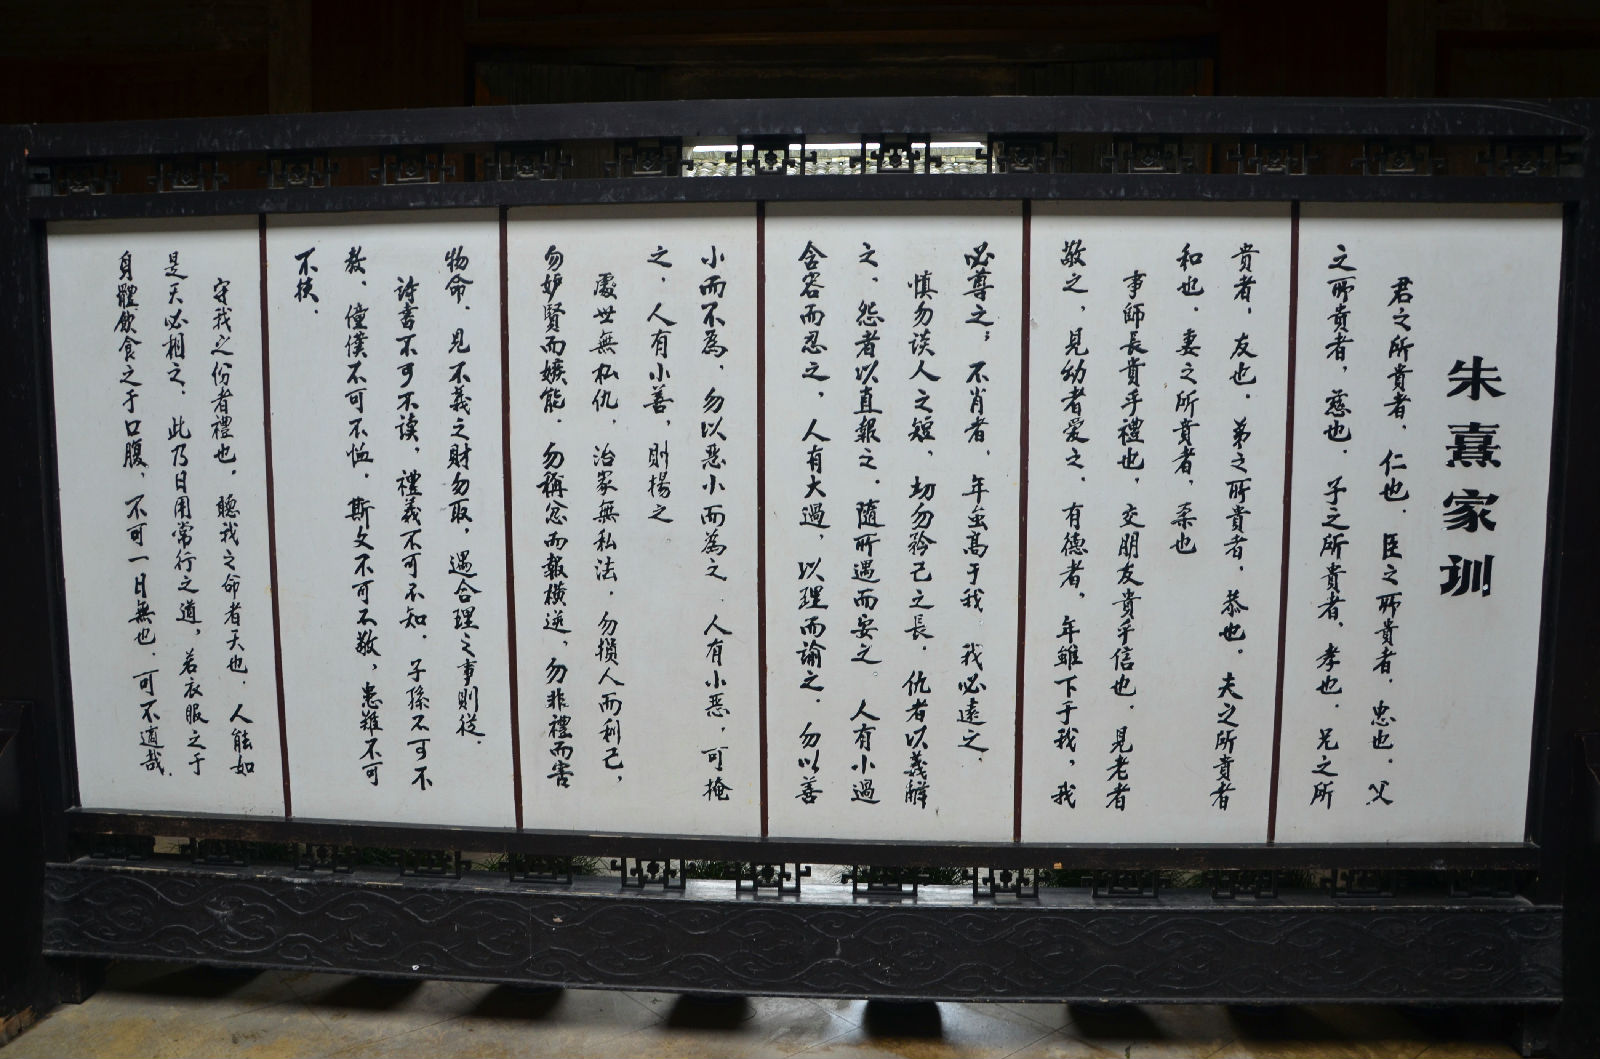 朱熹家训
君之所貴者，仁也．臣之所貴者，忠也．父
之所貴者，慈也．子之所貴者，孝也．兄之所
貴者，友也．弟之所貴者，恭也．夫之所貴者
和也．妻之所貴者，柔也
事師長貴乎禮也，交朋友貴乎信也．見老者
敬之，見幼者爱之．有德者，年雖下于我，我
必尊之；不肖者，年虽高于我　我必遠之．
慎勿谈人之短，切勿矜己之長．仇者以義解
之，怨者以直報之．隨所遇而安之　人有小過
含容而忍之，人有大過，以理而諭之．勿以善
小而不為，勿以恶小而為之．人有小恶，可掩
之，人有小善，則揚之
處世無私仇，治家無私法，勿損人而利己，
勿妒賢而嫉能．勿稱忿而報横逆，勿非禮而害
物命．見不義之財勿取，遇合理之事則從．
诗書不可不读，禮義不可不知．子孫不可不
教，僮僕不可不恤．斯文不可不敬，患難不可
不扶．
守我之份者禮也．聽我之命者天也．人能如
是天必相之．此乃日用常行之道，若衣服之于
身體飲食之于口腹，不可一日無也，可不適哉．